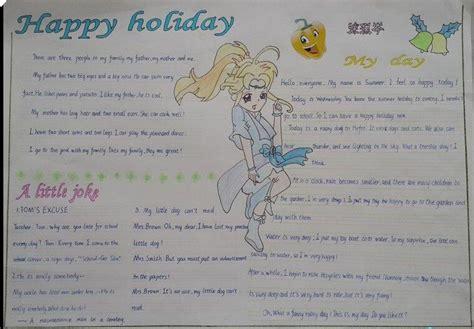 Happy holiday
There are three people in my family, my father, my mother and me.
My father has two big eyes and a big nose. He can swim very
fast. He likes pears and potatoes. I like my father, he is cool.
My mother has long hair and two small ears. She can cook well!
I have two short arms and two legs. I can play the piano and dance.
I go to the park with my family. This my family, they are great!
My day
Hello, everyone. My name is Summer. I feel so happy today!
Today is Wednesday. You know the summer holiday is coming. I needn't
go to school. So I can have a happy holiday now.
Today is a rainy day in It rains cats and dogs. We also can
hear thunder, and see lightning in the sky. What a terrible day! I
think.
At o'clock, rain becomes smaller, and there are many children in
the garden. I'm in raining, I always happy to go to the garden and
play with them.
Water is very deep. I put my toy boat onto water. So my summer, my boat
sailing on water, so I'm very happy!
After a while, I begin to make bicycles with my friend running. though the water
is very deep and it's very hard to make, but I'm very funny!
Oh, What a fancy rainy day! This is my day. Do you like it?
A little joke
1. TOM'S EXCUSE
Teacher: Tom, why are you late for school
every day? Tom: Every time I come to the
school corner, a sign says, "School-Go Slow".
2. He is really somebody
My uncle has 1000 men under him.
He is really somebody. What does he do?
A maintenance man in a cemetery.
3. My little dog can't read
Mrs. Brown: Oh, my dear, I have lost my precious
little dog!
Mrs. Smith: But you must put an advertisement
in the papers!
Mrs. Brown: It's no use, my little dog can't
read.